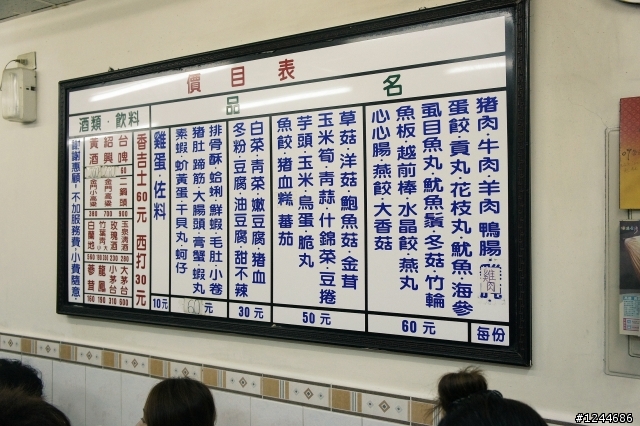 價目表
品名
豬肉·牛肉·羊肉 鴨腸
雞肉
蛋餃·貢丸·花枝丸·魷魚·海參
虱目魚丸·魷魚鬚·冬菇·竹輪
魚板·越前棒·水晶餃·燕丸
心心腸·燕餃·大香菇
每份
60元
草菇·洋菇·鮑魚菇·金茸
玉米筍·青蒜·什錦菜·豆捲
芋頭·玉米·鳥蛋·脆丸
魚餃·豬血糕 蕃茄
50元
白菜·青菜·嫩豆腐·豬血
冬粉·豆腐·油豆腐 甜不辣
30元
排骨酥·蛤蜊·鮮蝦·毛肚·小卷
豬肚·蹄筋·大腸頭·膏蟹·蝦丸
素蝦·蚧黃蛋·干貝丸·蚵仔
60元
雞蛋·佐料
10元
酒類·飲料
香吉士60元 西打30元
台啤
紹興
黃酒
60
二鍋頭
金門小高粱
金門高粱
900
700
380
玉泉清酒
玫瑰酒
竹葉青
白蘭地
280
230
190
560
大茅台
小茅台
龍鳳
參茸
600
310
190
160
謝謝惠顧·不加服務費·小費隨意·
#1244686